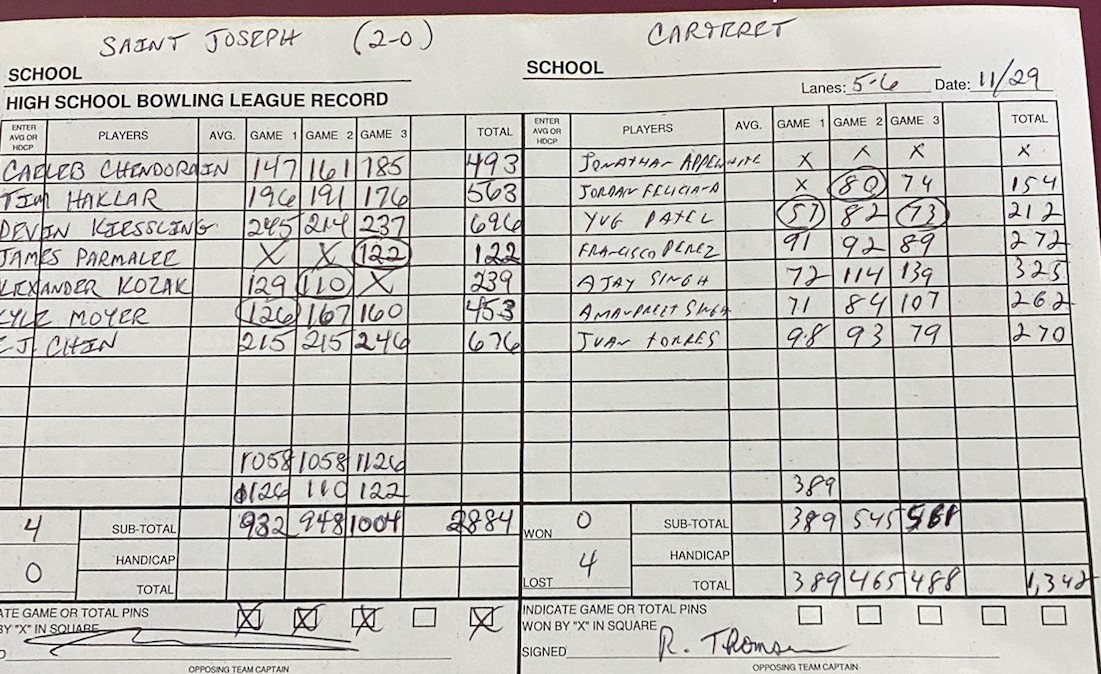 SAINT JOSEPH (2-0) CARTERET
SCHOOL SCHOOL
Lanes: 5-6 Date: 11/29
HIGH SCHOOL BOWLING LEAGUE RECORD
ENTER AVG OR HDCP PLAYERS AVG. GAME 1 GAME 2 GAME 3 TOTAL ENTER AVG OR HDCP PLAYERS AVG. GAME 1 GAME 2 GAME 3 TOTAL
CAELEB CHENDORAIN 147 161 185 493 JONATHAN APPEWHITE X X X X
TIM HAKLAR 196 191 176 563 JORDAN FELICIANO X 80 74 154
DEVIN KIESSLING 245 214 237 696 YUG PATEL 57 82 73 212
JAMES PARMALEE X X 122 122 FRANCISCO PEREZ 91 92 89 272
ALEXANDER KOZAK 129 110 X 239 AJAY SINGH 72 114 139 325
KYLE MOYER 126 167 160 453 AMANPREET SINGH 71 84 107 262
CJ CHIN 215 215 246 676 JUAN TORRES 98 93 79 270
1058 1058 1126
126 110 122 389
4 SUB-TOTAL 932 948 1004 2884 WON 0 SUB-TOTAL 389 545 561
HANDICAP HANDICAP
0 TOTAL LOST 4 TOTAL 389 465 488 1,342
ATE GAME OR TOTAL PINS INDICATE GAME OR TOTAL PINS
BY "X" IN SQUARE X X X X WON BY "X" IN SQUARE
D SIGNED R. Thomsen
OPPOSING TEAM CAPTAIN OPPOSING TEAM CAPTAIN